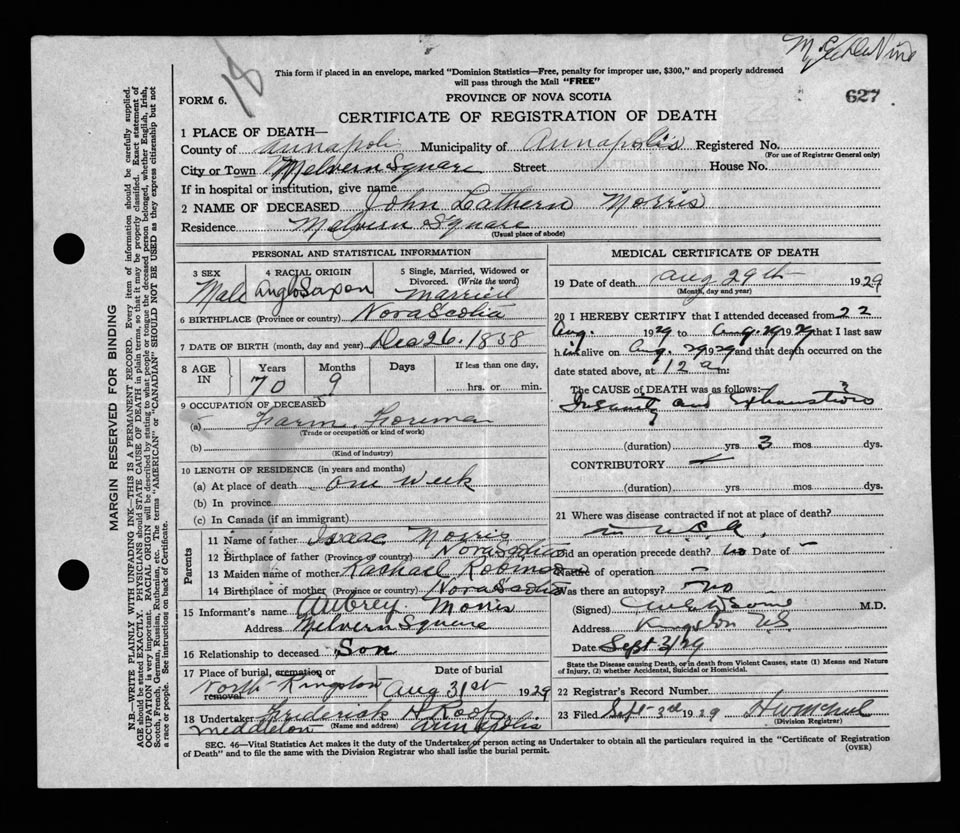 18
This form if placed in an envelope, marked "Dominion Statistics—Free, penalty for improper use, $300," and properly addressed
will pass through the Mail "FREE"
627
FORM 6.
PROVINCE OF NOVA SCOTIA
CERTIFICATE OF REGISTRATION OF DEATH
1 PLACE OF DEATH—
County of Annapoli Municipality of Annapolis Registered No.
(For use of Registrar General only)
City or Town Melvern Square Street House No.
If in hospital or institution, give name
2 NAME OF DECEASED John Lathern Morris
Residence Melvern Square
(Usual place of abode)
PERSONAL AND STATISTICAL INFORMATION
3 SEX 4 RACIAL ORIGIN 5 Single, Married, Widowed or Divorced. (Write the word)
Male Anglo Saxon Married
6 BIRTHPLACE (Province or country) Nova Scotia
7 DATE OF BIRTH (month, day and year) Dec 26. 1858
8 AGE IN Years Months Days If less than one day,
70 9 hrs. or min.
9 OCCUPATION OF DECEASED
(a) Farm Foreman
(Trade or occupation or kind of work)
(b)
(Kind of industry)
10 LENGTH OF RESIDENCE (in years and months)
(a) At place of death one week
(b) In province
(c) In Canada (if an immigrant)
Parents
11 Name of father Isaac Morris
12 Birthplace of father (Province or country) Nova Scotia
13 Maiden name of mother Rachael
14 Birthplace of mother (Province or country) Nova Scotia
15 Informant's name Aubrey Morris
Address Melvern Square
16 Relationship to deceased Son
17 Place of burial, cremation or removal Date of burial
North Kingston Aug 31st 1929
18 Undertaker Frederick H Roop
Middleton (Name and address) Annapolis
MEDICAL CERTIFICATE OF DEATH
19 Date of death Aug 29th 1929
(Month, day and year)
20 I HEREBY CERTIFY that I attended deceased from 22
Aug. 1929 to Aug. 29 1929 that I last saw
him alive on Aug. 29 1929 and that death occurred on the
date stated above, at 12 a m:
The CAUSE of DEATH was as follows:
Insanity and exhaustion
(duration) yrs 3 mos dys.
CONTRIBUTORY
(duration) yrs. mos. dys.
21 Where was disease contracted if not at place of death?
in U.S.A.
Did an operation precede death? no Date of –
Nature of operation –
Was there an autopsy? no
(Signed) M.D.
Address Kingston N.S.
Date Sept 3/29
State the Disease causing Death, or in death from Violent Causes, state (1) Means and Nature
of Injury, (2) whether Accidental, Suicidal or Homicidal.
22 Registrar's Record Number
23 Filed Sept 3rd 1929
(Division Registrar)
SEC. 46—Vital Statistics Act makes it the duty of the Undertaker or person acting as Undertaker to obtain all the particulars required in the "Certificate of Registration
of Death" and to file the same with the Division Registrar who shall issue the burial permit.
(OVER)
MARGIN RESERVED FOR BINDING
N.B.—WRITE PLAINLY WITH UNFADING INK—THIS IS A PERMANENT RECORD. Every item of information should be carefully supplied.
AGE should be stated EXACTLY. PHYSICIANS should STATE CAUSE OF DEATH in plain terms, so that it may be properly classified. Exact statement of
OCCUPATION is very important. RACIAL ORIGIN will be described by stating to what people or tongue the deceased person belonged, whether English, Irish,
Scotch, French, German, Russian, Ruthenian, etc. The terms "AMERICAN" or "CANADIAN" SHOULD NOT BE USED as they express citizenship but not
a race or people. See instructions on back of Certificate.